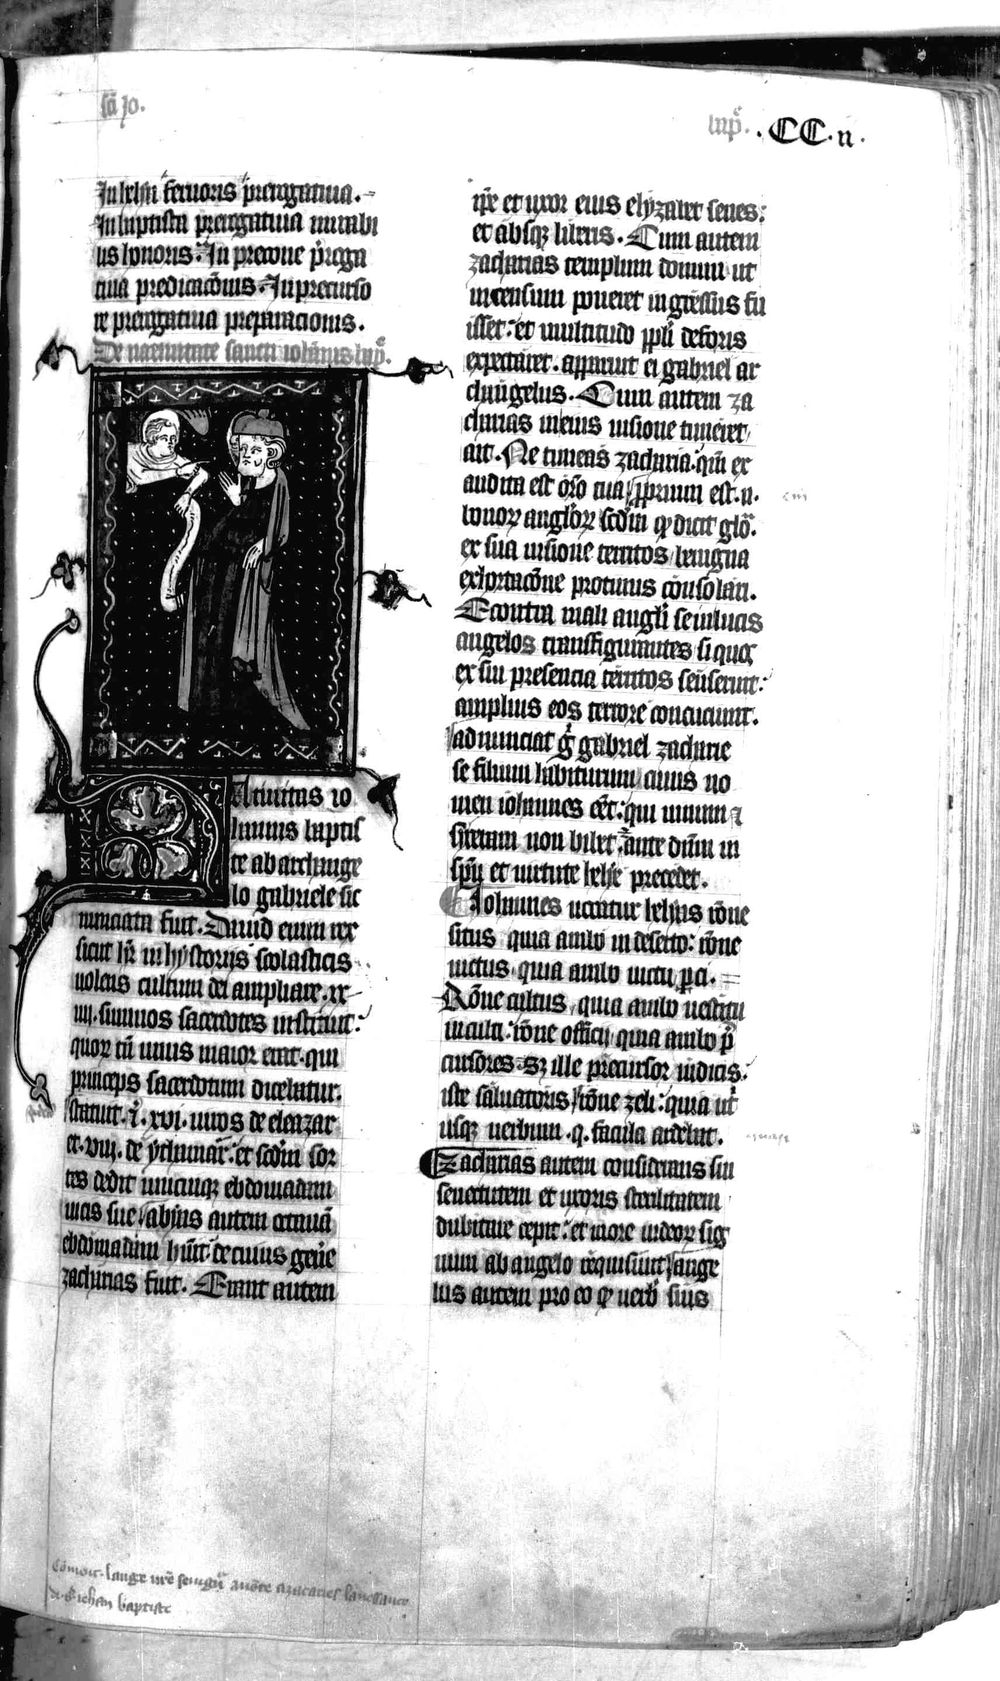 sci Jo.
bapᵉ. .CC.ii.
In helysei feruoris prerogatiua.
In baptista prerogatiua mirabi
lis honoris. In precone p̄roga
tiua predicac̄onis. In precurso
re prerogatiua preparacionis.
De natiuitate sancti ioh̄is bapᵉ.
Natiuitas io
hannis baptis
te ab archange
lo gabriele sic
nunciata fuit. Dauid enim rex
sicut hr̄ in hystoriis scolasticis
uolens cultum dei ampliare. xx
iiii. summos sacerdotes instituit:
quoꝝ tn̄ unus maior erat. qui
princeps sacerdotum dicebatur.
statuit. xvi. uiros de eleazar
et. viii. de ychamar̄: et scd̄m sor
tes dedit unicuiqꝫ ebdomadam
uicis sue. abyas autem octauā
ebdomadam hūit de cuius gen̄e
zacharias fuit. Erant autem
ip̄e et uxor eius elyzabet senes:
et absqꝫ liberis. Cum autem
zacharias templum domini ut
incensum poneret ingressus fu
isset: et multitudo ppl̄i deforis
expectaret. apparuit ei gabriel ar
changelus. Cum autem za
charias in eius uisione timeret
ait. Ne timeas zacharia. qm̄ ex
audita est or̄o tua. pprium est. n.
bonoꝝ angl̄oꝝ scd̄m qꝫ dicit glo̅.
ex sua uisione territos benigna
exhortac̄one protinus consolari.
Econtra mali angl̄i se in lucis
angelos transfigurantes si quos
ex sui presencia territos senserint:
amplius eos terrore concuciunt.
adnunciat gͦ gabriel zacharie
se filium habiturum cuius no
men iohannes eēt: qui uinum ⁊
syceram non biberet. ⁊ ante dn̄m in
spū et uirtute helye precederet.
Iohannes uocatur helyas rōne
situs quia ambo in deserto: rōne
uictus. quia ambo uictu pͣci.
Rōne cultus, quia ambo uestitu
inculti: rōne officij quia ambo p̄
cursores. sꝫ ille precursor iudicis.
iste saluatoris. rōne zeli: quia ut̄
usqꝫ uerbum. q. facula ardebat.
Zacharias autem considerans sui
senectutem et uxoris sterilitatem
dubitare cepit: et more iudeoꝝ sig
num ab angelo requisiuit. ange
lus autem pro eo qꝫ uerbis suis
de s. iehan baptiste